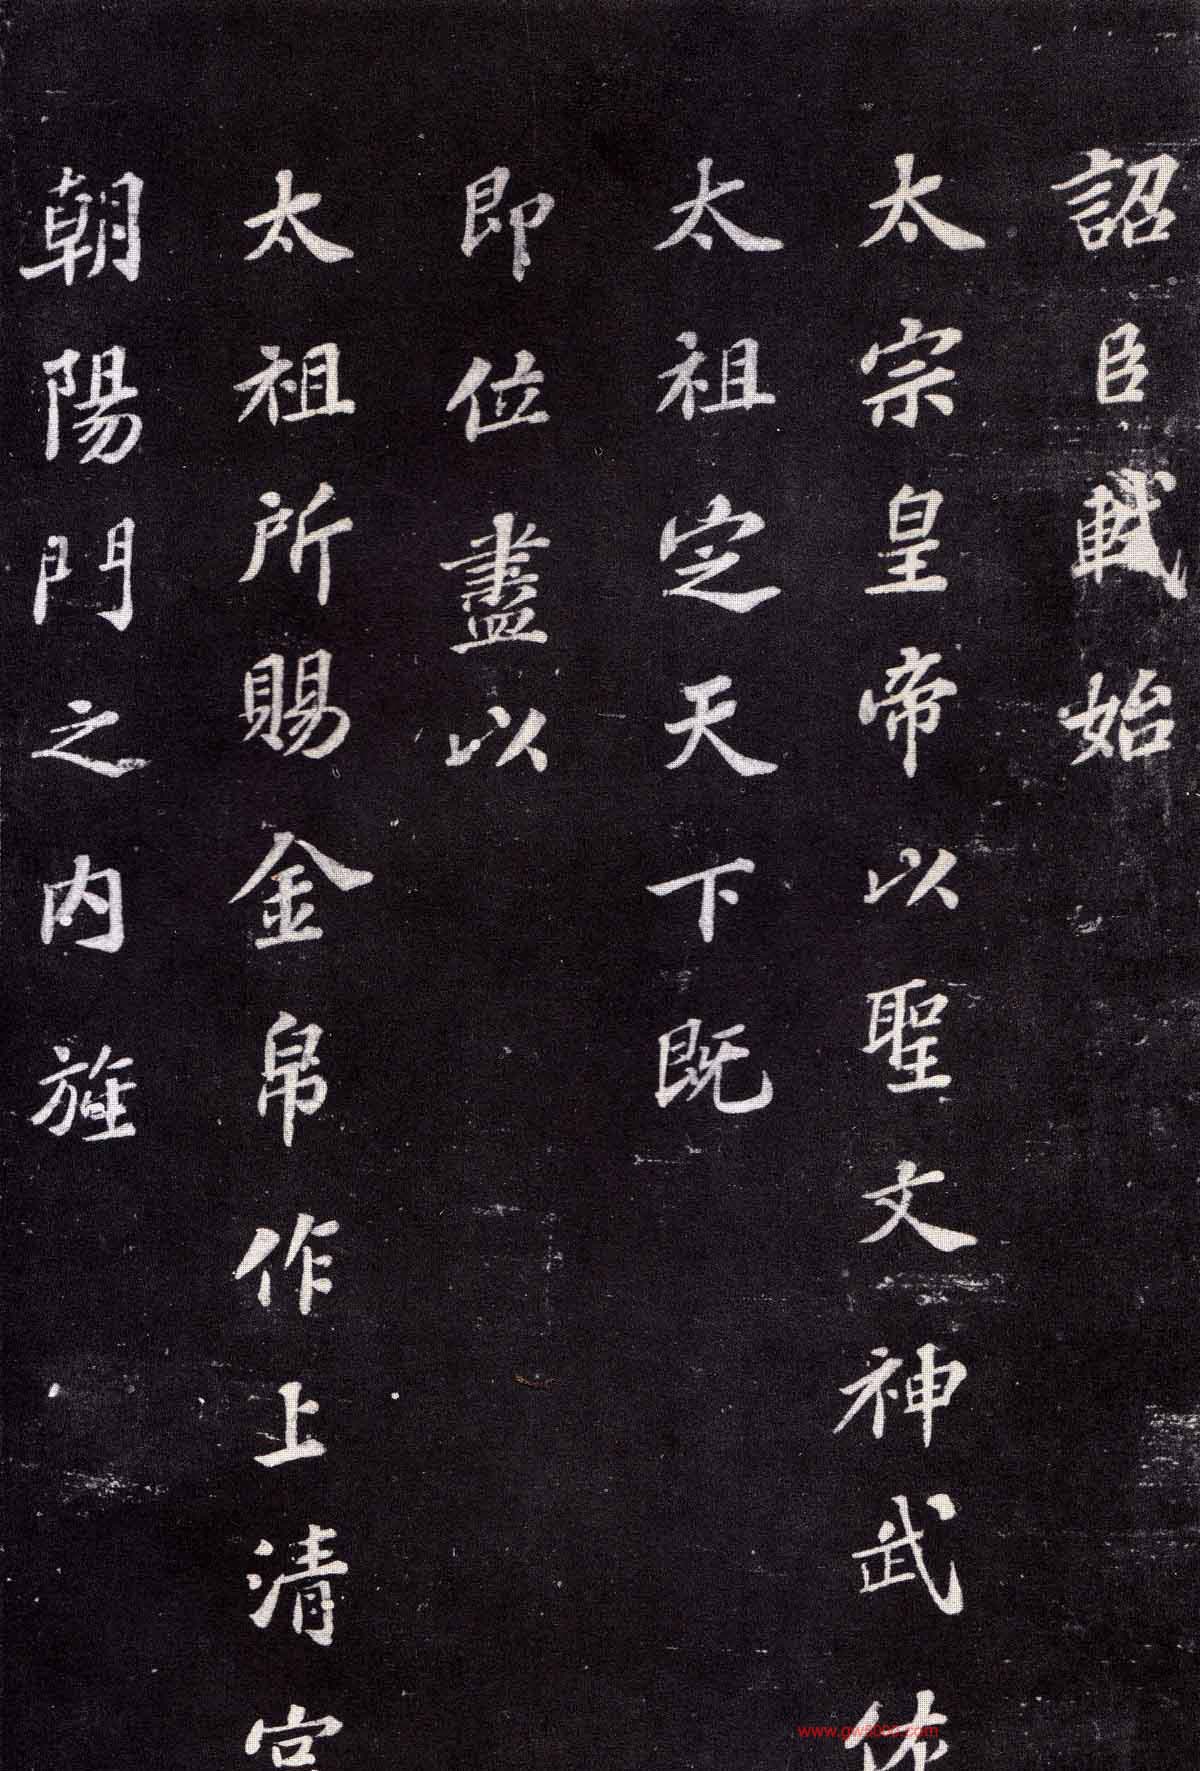 詔臣軾始
太宗皇帝以聖文神武佐
太祖定天下既
即位盡以
太祖所賜金帛作上清宮
朝陽門之內旌